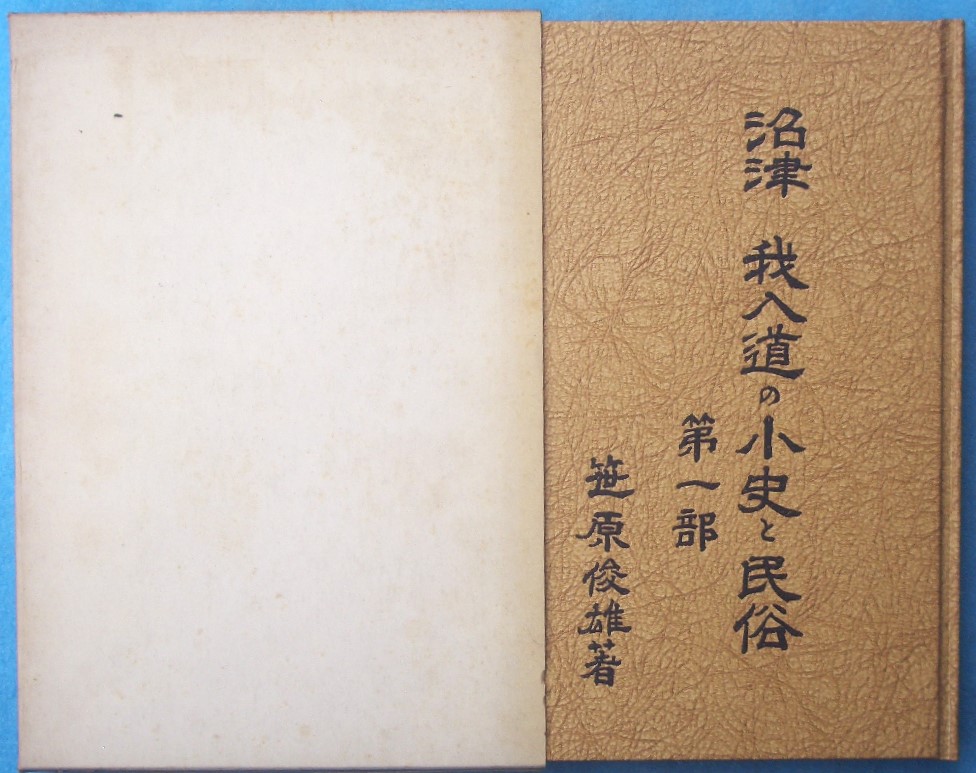 沼津 我入道の小史と民俗
第一部
笹原俊雄著